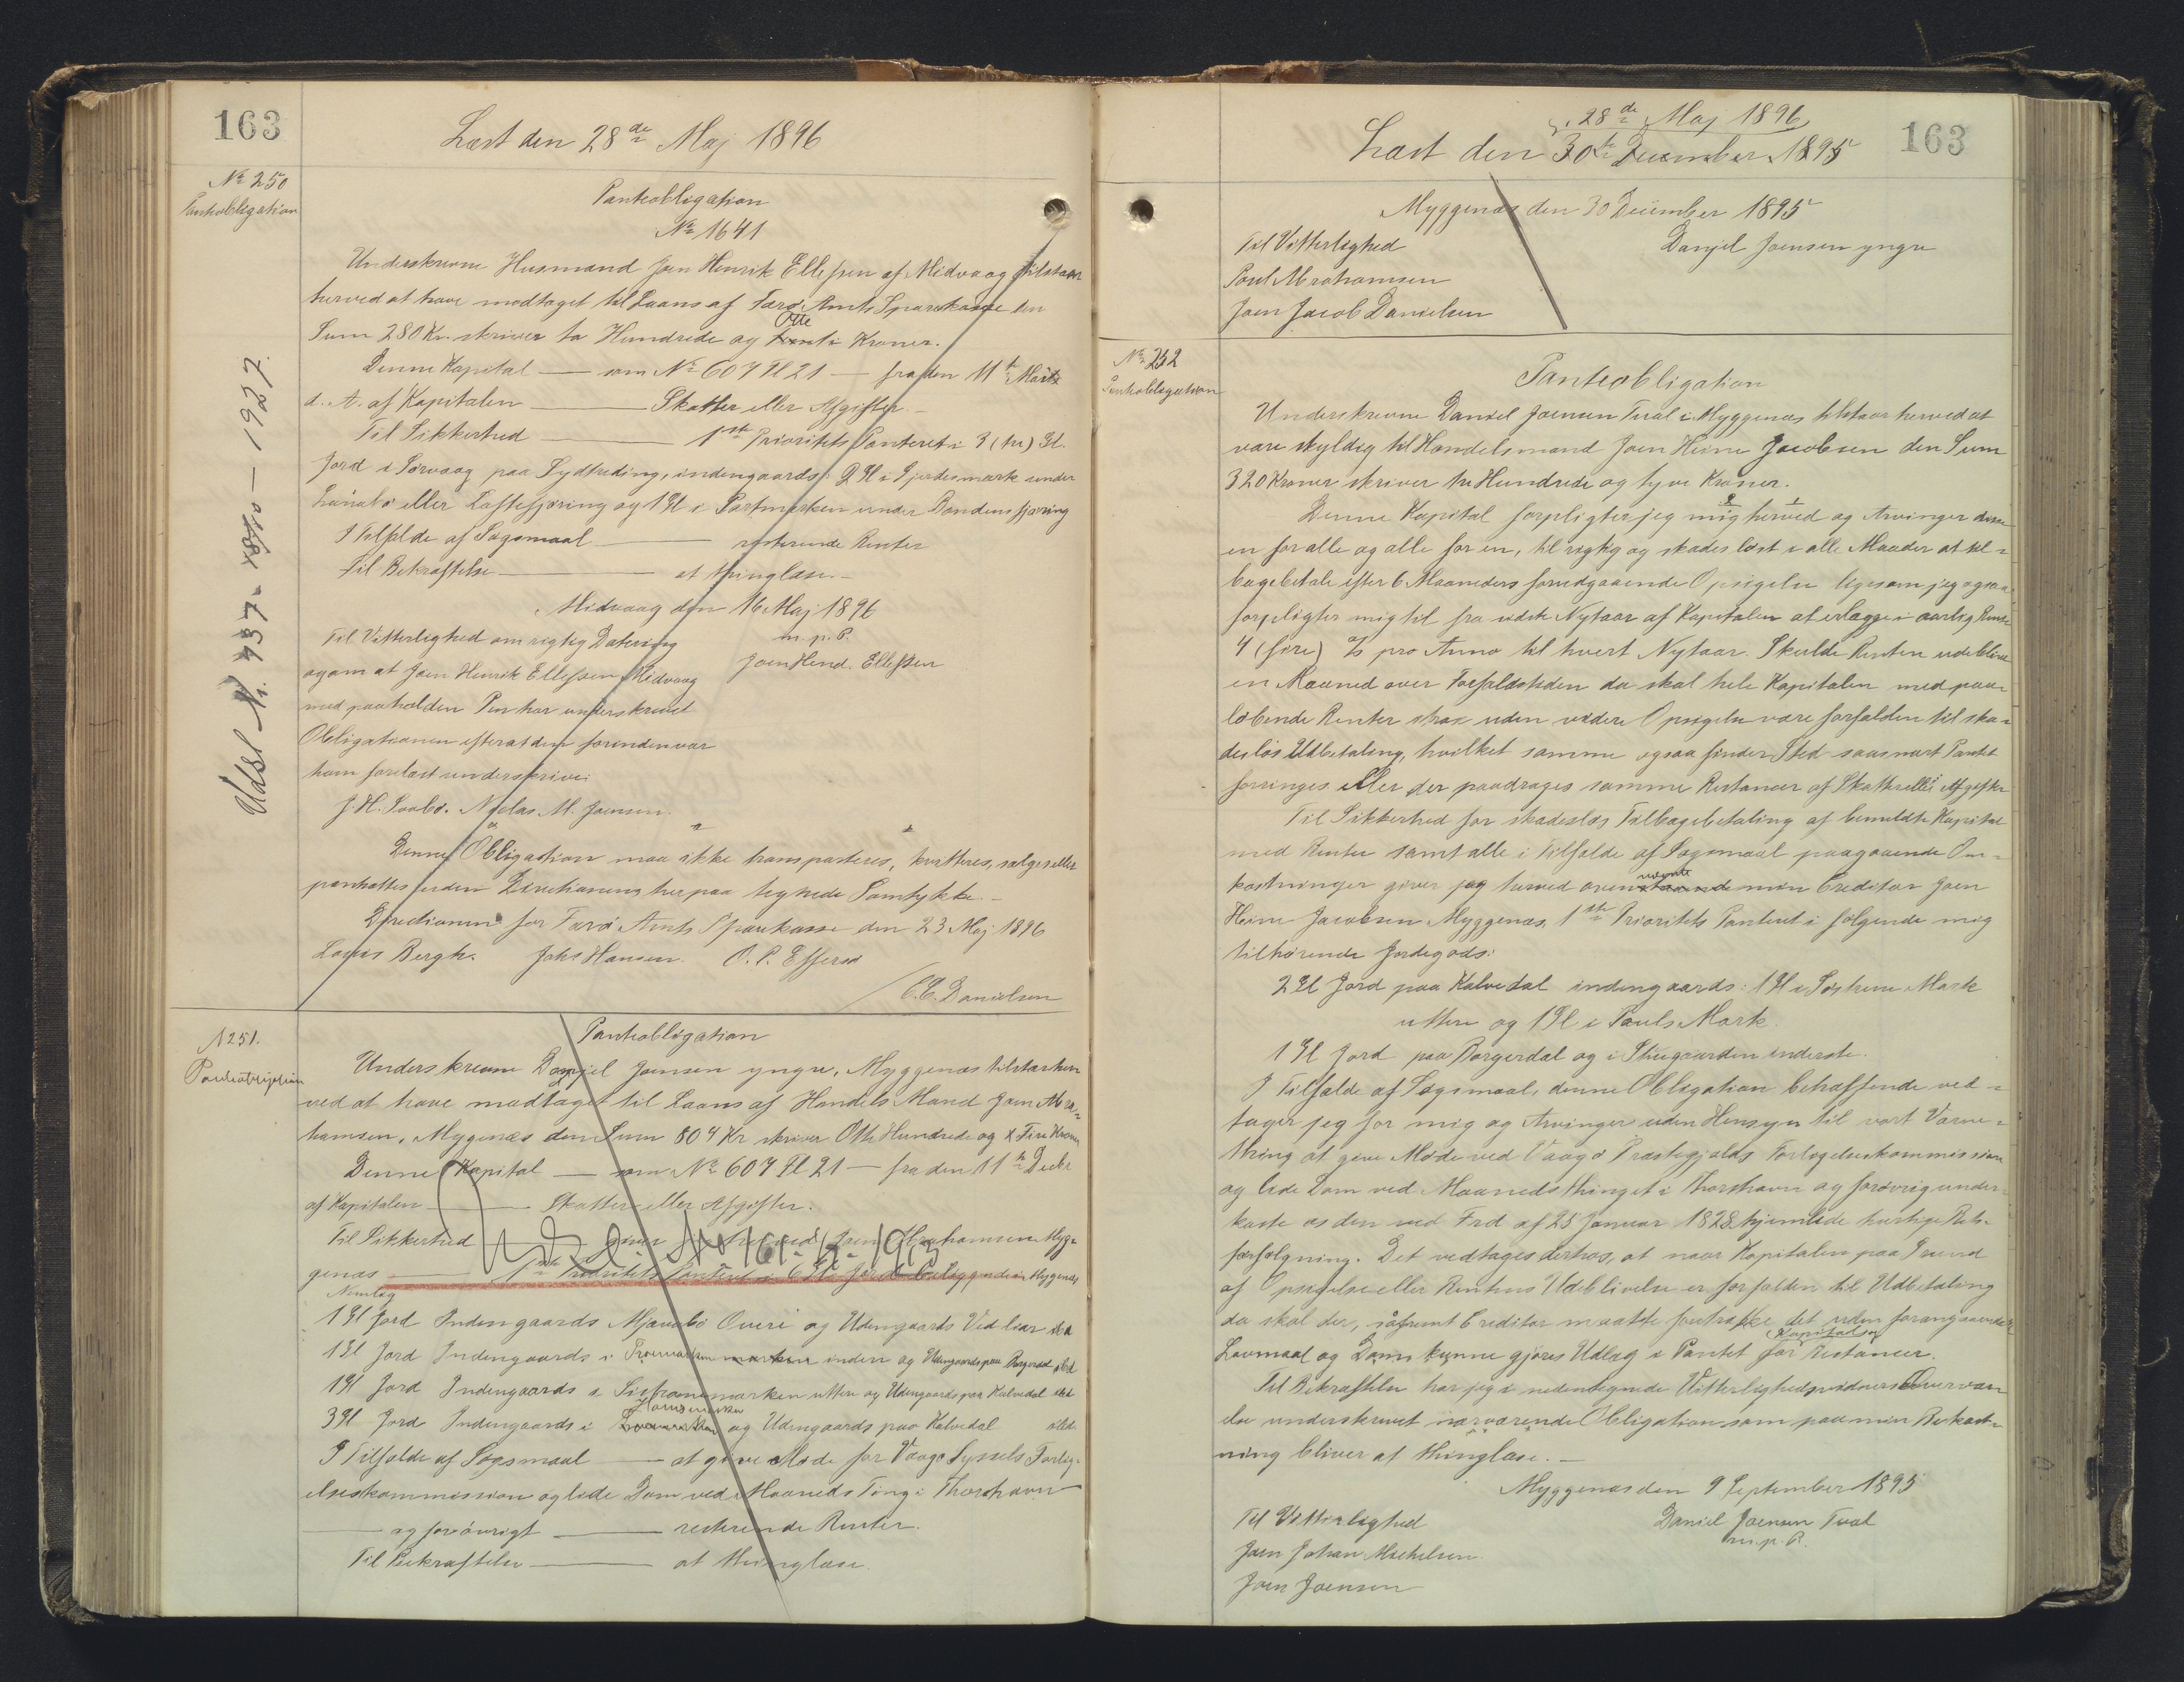 163
Læst den 28de Maj 1896
No 250
Panteobligation
Panteobligation
No 1641
Underskrevne Husmand Joen Henrik Ellefsen af Midvaag tilstaar
herved at have modtaget til Laans af Færø Amts Sparekasse den
Sum 280 Kr. skriver to Hundrede og Otte Kroner.
Denne Kapital — som No 607 Fl 21 — fra den 11te Marts
d. A. af Kapitalen — Skatter eller Afgifter. —
Til Sikkerhed — 1ste Prioritets Panteret i 3 (tre) Gl.
Jord i Sørvaag paa Sydtreding, indengaards: 2 Gl i Gjerdesmark under
eller Loftesfjøring og 1 Gl i under Bondensfjøring
I Tilfælde af Søgsmaal — resterende Renter
Til Bekræftelse — at thinglæse. —
Midvaag den 16 Maj 1896
Til Vitterlighed om rigtig Datering
m. p. P.
og om at Joen Henrik Ellefsen Midvaag
Joen Hend. Ellefsen
med paaholden Pen har underskrevet
Obligationen efterat den forinden var
ham forelæst underskrive:
J. H. Saabø. Niclas M. Joensen.
Denne Obligation maa ikke transporteres, kvitteres, sælges eller
panthættes uden Directionens herpaa tegnede Samtykke. —
Directionen for Færø Amts Sparekasse den 23 Maj 1896
Louis Bergh. Johs Hansen. O. P. Effersø
/ C. C. Danielsen
Udsl Nr. 437 — 1927.
N 251.
Panteobligation
Panteobligation
Underskrevne Danjel Joensen yngre, Myggenæs tilstaar her
ved at have modtaget til Laans af Handels Mand Joen Abra-
hamsen, Mygenæs den Sum 804 Kr skriver Otte Hundrede og Fire Kroner
Denne Kapital — som No 607 Fl 21 — fra den 11te Decbr
af Kapitalen — Skatter eller Afgifter.
Til Sikkerhed — giver jeg herved Joen Abrahamsen Myg-
genæs — 1ste Prioritets Panteret i 6 Gl Jord beliggende i Myggenæs
Nemlig
1 Gl Jord Indengaards Overi og Udengaards Vid liar
1 Gl Jord Indengaards i inden og Udengaards paa Borgerdal
1 Gl Jord Indengaards i uttere og Udengaards paa Kalvedal
3 Gl Jord Indengaards i og Udengaards paa Kalvedal
I Tilfælde af Søgsmaal — at give Møde for Vaagø Syssels Forlig-
elseskommission og lide Dom ved Maaneds Ting i Thorshavn
— og forøvrigt — resterende Renter.
Til Bekræftelse — at thinglæse.
163
28de Maj 1896
Læst den 30te December 1895
Myggenæs den 30 December 1895
Til Vitterlighed
Danjel Joensen yngre
Poul Abrahamsen
Joen Jacob Danielsen
No 252
Panteobligation
Panteobligation
Underskrevne Daniel Joensen Tval i Myggenæs tilstaar herved at
være skyldig til Handelsmand Joen Heine Jacobsen den Sum
320 Kroner skriver tre Hundrede og tyve Kroner.
Denne Kapital forpligter jeg mig herved og Arvinger
en for alle og alle for en, til rigtig og skadesløst i alle Maader at til-
bagebetale efter 6 Maaneders forudgaaende Opsigelse ligesom jeg ogsaa
forpligter mig til fra sidste Nytaar af Kapitalen at erlægge i aarlig Rente
4 (fire) % pro Anno til hvert Nytaar. Skulde Renten udeblive
en Maaned over Forfaldstiden da skal hele Kapitalen med paa-
løbende Renter strax uden videre Opsigelse være forfalden til ska-
desløs Udbetaling, hvilket samme ogsaa finder Sted saasnart Pantet
forringes eller der paadrages samme Restancer af Skatter eller Afgifter
Til Sikkerhed for skadesløs Tilbagebetaling af bemeldte Kapital
med Renter samt alle i Tilfælde af Søgsmaal paagaaende Om-
kostninger giver jeg herved ovennævnte min Creditor Joen
Heine Jacobsen Myggenæs, 1ste Prioritets Panteret i følgende mig
tilhørende Jordegods:
2 Gl Jord paa Kalvedal indengaards: 1 Gl i Mark
uttere og 1 Gl i Pauls Mark.
1 Gl Jord paa Borgerdal og i inderste.
I Tilfælde af Søgsmaal, denne Obligation betræffende ved-
tager jeg for mig og Arvinger uden Hensyn til vort Værne-
thing at give Møde ved Vaagø Præstegjelds Forligelseskommission
og lide Dom ved Maanedsthinget i Thorshavn og forøvrig under-
kaste os den ved Frd af 25 Januar 1828 hjemlede hurtige Rets-
forfølgning. Det vedtages derhos, at naar Kapitalen paa Grund
af Opsigelse eller Rentens Udeblivelse er forfalden til Udbetaling
da skal der, såfremt Creditor maatte foretrække det uden forangaaende
Lovmaal og Dom kunne gjøres Udlæg i Pantet for Kapital og Restancer.
Til Bekræftelse har jeg i nedentegnede Vitterlighedsvidners Overvær-
else underskrevet nærværende Obligation som paa min Bekost-
ning bliver at thinglæse. —
Myggenæs den 9 September 1895
Til Vitterlighed
Daniel Joensen Tval
m. p. P.
Joen Johan Michelsen.
Joen Joensen